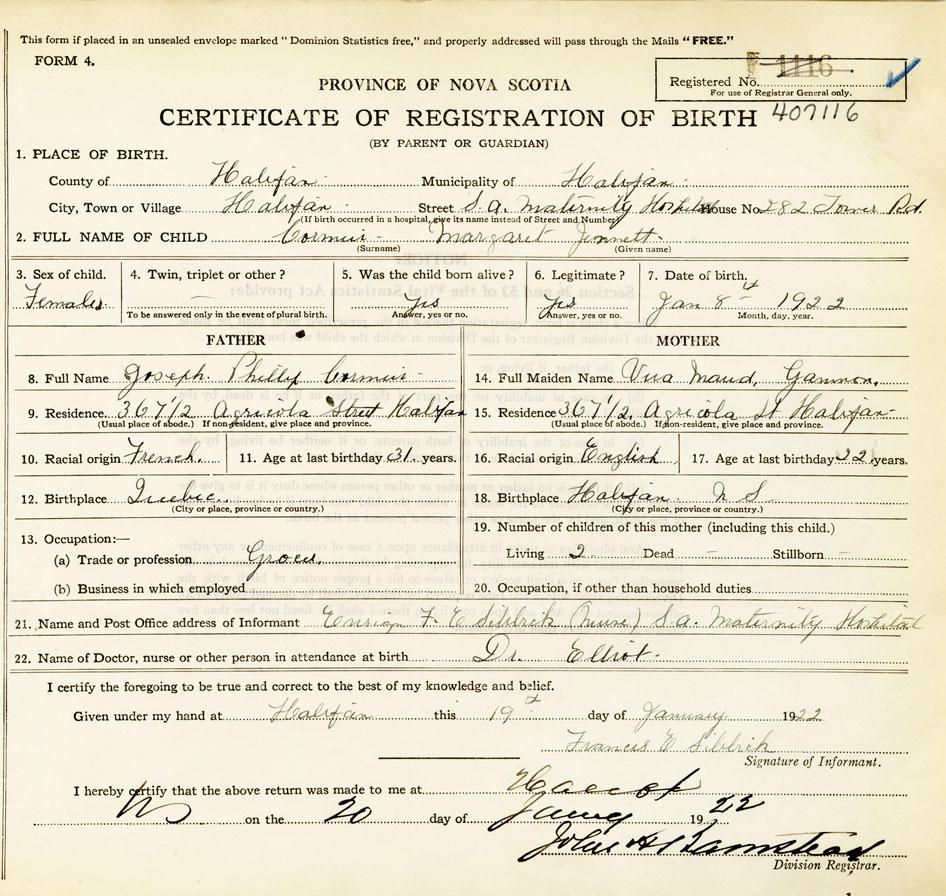 This form if placed in an unsealed envelope marked “Dominion Statistics free,” and properly addressed will pass through the Mails “FREE.”
FORM 4.
PROVINCE OF NOVA SCOTIA
Registered No. 1116
For use of Registrar General only.
CERTIFICATE OF REGISTRATION OF BIRTH 407116
(BY PARENT OR GUARDIAN)
1. PLACE OF BIRTH.
County of Halifax Municipality of Halifax
City, Town or Village Halifax Street S.A. Maternity Hospital House No. 282 Tower Rd.
(If birth occurred in a hospital, give its name instead of Street and Number)
2. FULL NAME OF CHILD Cormier - Margaret Jennett -
(Surname) (Given name)
3. Sex of child. 4. Twin, triplet or other? 5. Was the child born alive? 6. Legitimate? 7. Date of birth.
Female. — Yes Yes Jan 8th 1922
To be answered only in the event of plural birth. Answer, yes or no. Answer, yes or no. Month, day, year.
FATHER MOTHER
8. Full Name Joseph Phillip Cormier - 14. Full Maiden Name Vera Maud, Gammon.
9. Residence. 367 1/2 Agricola Street Halifax 15. Residence 367 1/2 Agricola St Halifax -
(Usual place of abode.) If non-resident, give place and province. (Usual place of abode.) If non-resident, give place and province.
10. Racial origin French. 11. Age at last birthday 31. years. 16. Racial origin English 17. Age at last birthday 22 years.
12. Birthplace Quebec. 18. Birthplace Halifax N S
(City or place, province or country.) (City or place, province or country.)
13. Occupation:— 19. Number of children of this mother (including this child.)
(a) Trade or profession Grocer. Living 2 Dead — Stillborn —
(b) Business in which employed 20. Occupation, if other than household duties
21. Name and Post Office address of Informant Ensign F. E Sibbrick (Nurse) S.A. Maternity Hospital
22. Name of Doctor, nurse or other person in attendance at birth Dr. Elliot -
I certify the foregoing to be true and correct to the best of my knowledge and belief.
Given under my hand at Halifax this 19th day of January 1922
Francis E Sibbrick
Signature of Informant.
I hereby certify that the above return was made to me at
NS on the 20 day of 1922
John A
Division Registrar.